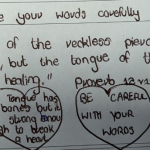 your words carefully
of the reckless pierce
but the tongue of th
healing."
Proverb 12 v 1
Tongue has
bones but it
strong enoug
gh to break
a heart
BE CAREFUL
WITH YOUR
WORDS